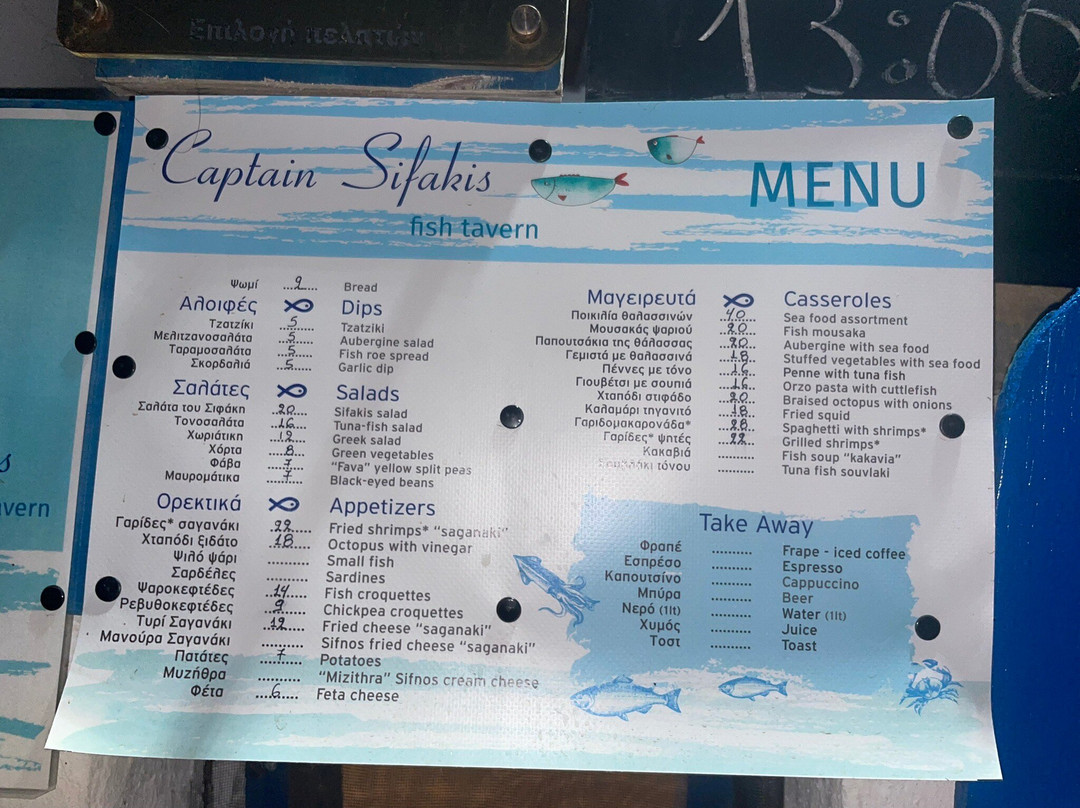 Επιλογή πελατών
13:00
Captain Sifakis
fish tavern
MENU
Ψωμί 2 Bread
Αλοιφές Dips
Τζατζίκι 5 Tzatziki
Μελιτζανοσαλάτα 5 Aubergine salad
Ταραμοσαλάτα 5 Fish roe spread
Σκορδαλιά 5 Garlic dip
Σαλάτες Salads
Σαλάτα του Σιφάκη 20 Sifakis salad
Τονοσαλάτα 16 Tuna-fish salad
Χωριάτικη 12 Greek salad
Χόρτα 8 Green vegetables
Φάβα 7 "Fava" yellow split peas
Μαυρομάτικα 7 Black-eyed beans
Ορεκτικά Appetizers
Γαρίδες* σαγανάκι 22 Fried shrimps* "saganaki"
Χταπόδι ξιδάτο 18 Octopus with vinegar
Ψιλό ψάρι .......... Small fish
Σαρδέλες .......... Sardines
Ψαροκεφτέδες 14 Fish croquettes
Ρεβυθοκεφτέδες 9 Chickpea croquettes
Τυρί Σαγανάκι 12 Fried cheese "saganaki"
Μανούρα Σαγανάκι .......... Sifnos fried cheese "saganaki"
Πατάτες 7 Potatoes
Μυζήθρα .......... "Mizithra" Sifnos cream cheese
Φέτα 6 Feta cheese
Μαγειρευτά Casseroles
Ποικιλία θαλασσινών 40 Sea food assortment
Μουσακάς ψαριού 20 Fish mousaka
Παπουτσάκια της θάλασσας 20 Aubergine with sea food
Γεμιστά με θαλασσινά 18 Stuffed vegetables with sea food
Πέννες με τόνο 16 Penne with tuna fish
Γιουβέτσι με σουπιά 16 Orzo pasta with cuttlefish
Χταπόδι στιφάδο 20 Braised octopus with onions
Καλαμάρι τηγανιτό 18 Fried squid
Γαριδομακαρονάδα* 28 Spaghetti with shrimps*
Γαρίδες* ψητές 22 Grilled shrimps*
Κακαβιά .......... Fish soup "kakavia"
Σουβλάκι τόνου .......... Tuna fish souvlaki
Take Away
Φραπέ .......... Frape - iced coffee
Εσπρέσο .......... Espresso
Καπουτσίνο .......... Cappuccino
Μπύρα .......... Beer
Νερό (1lt) .......... Water (1lt)
Χυμός .......... Juice
Τοστ .......... Toast
s
avern